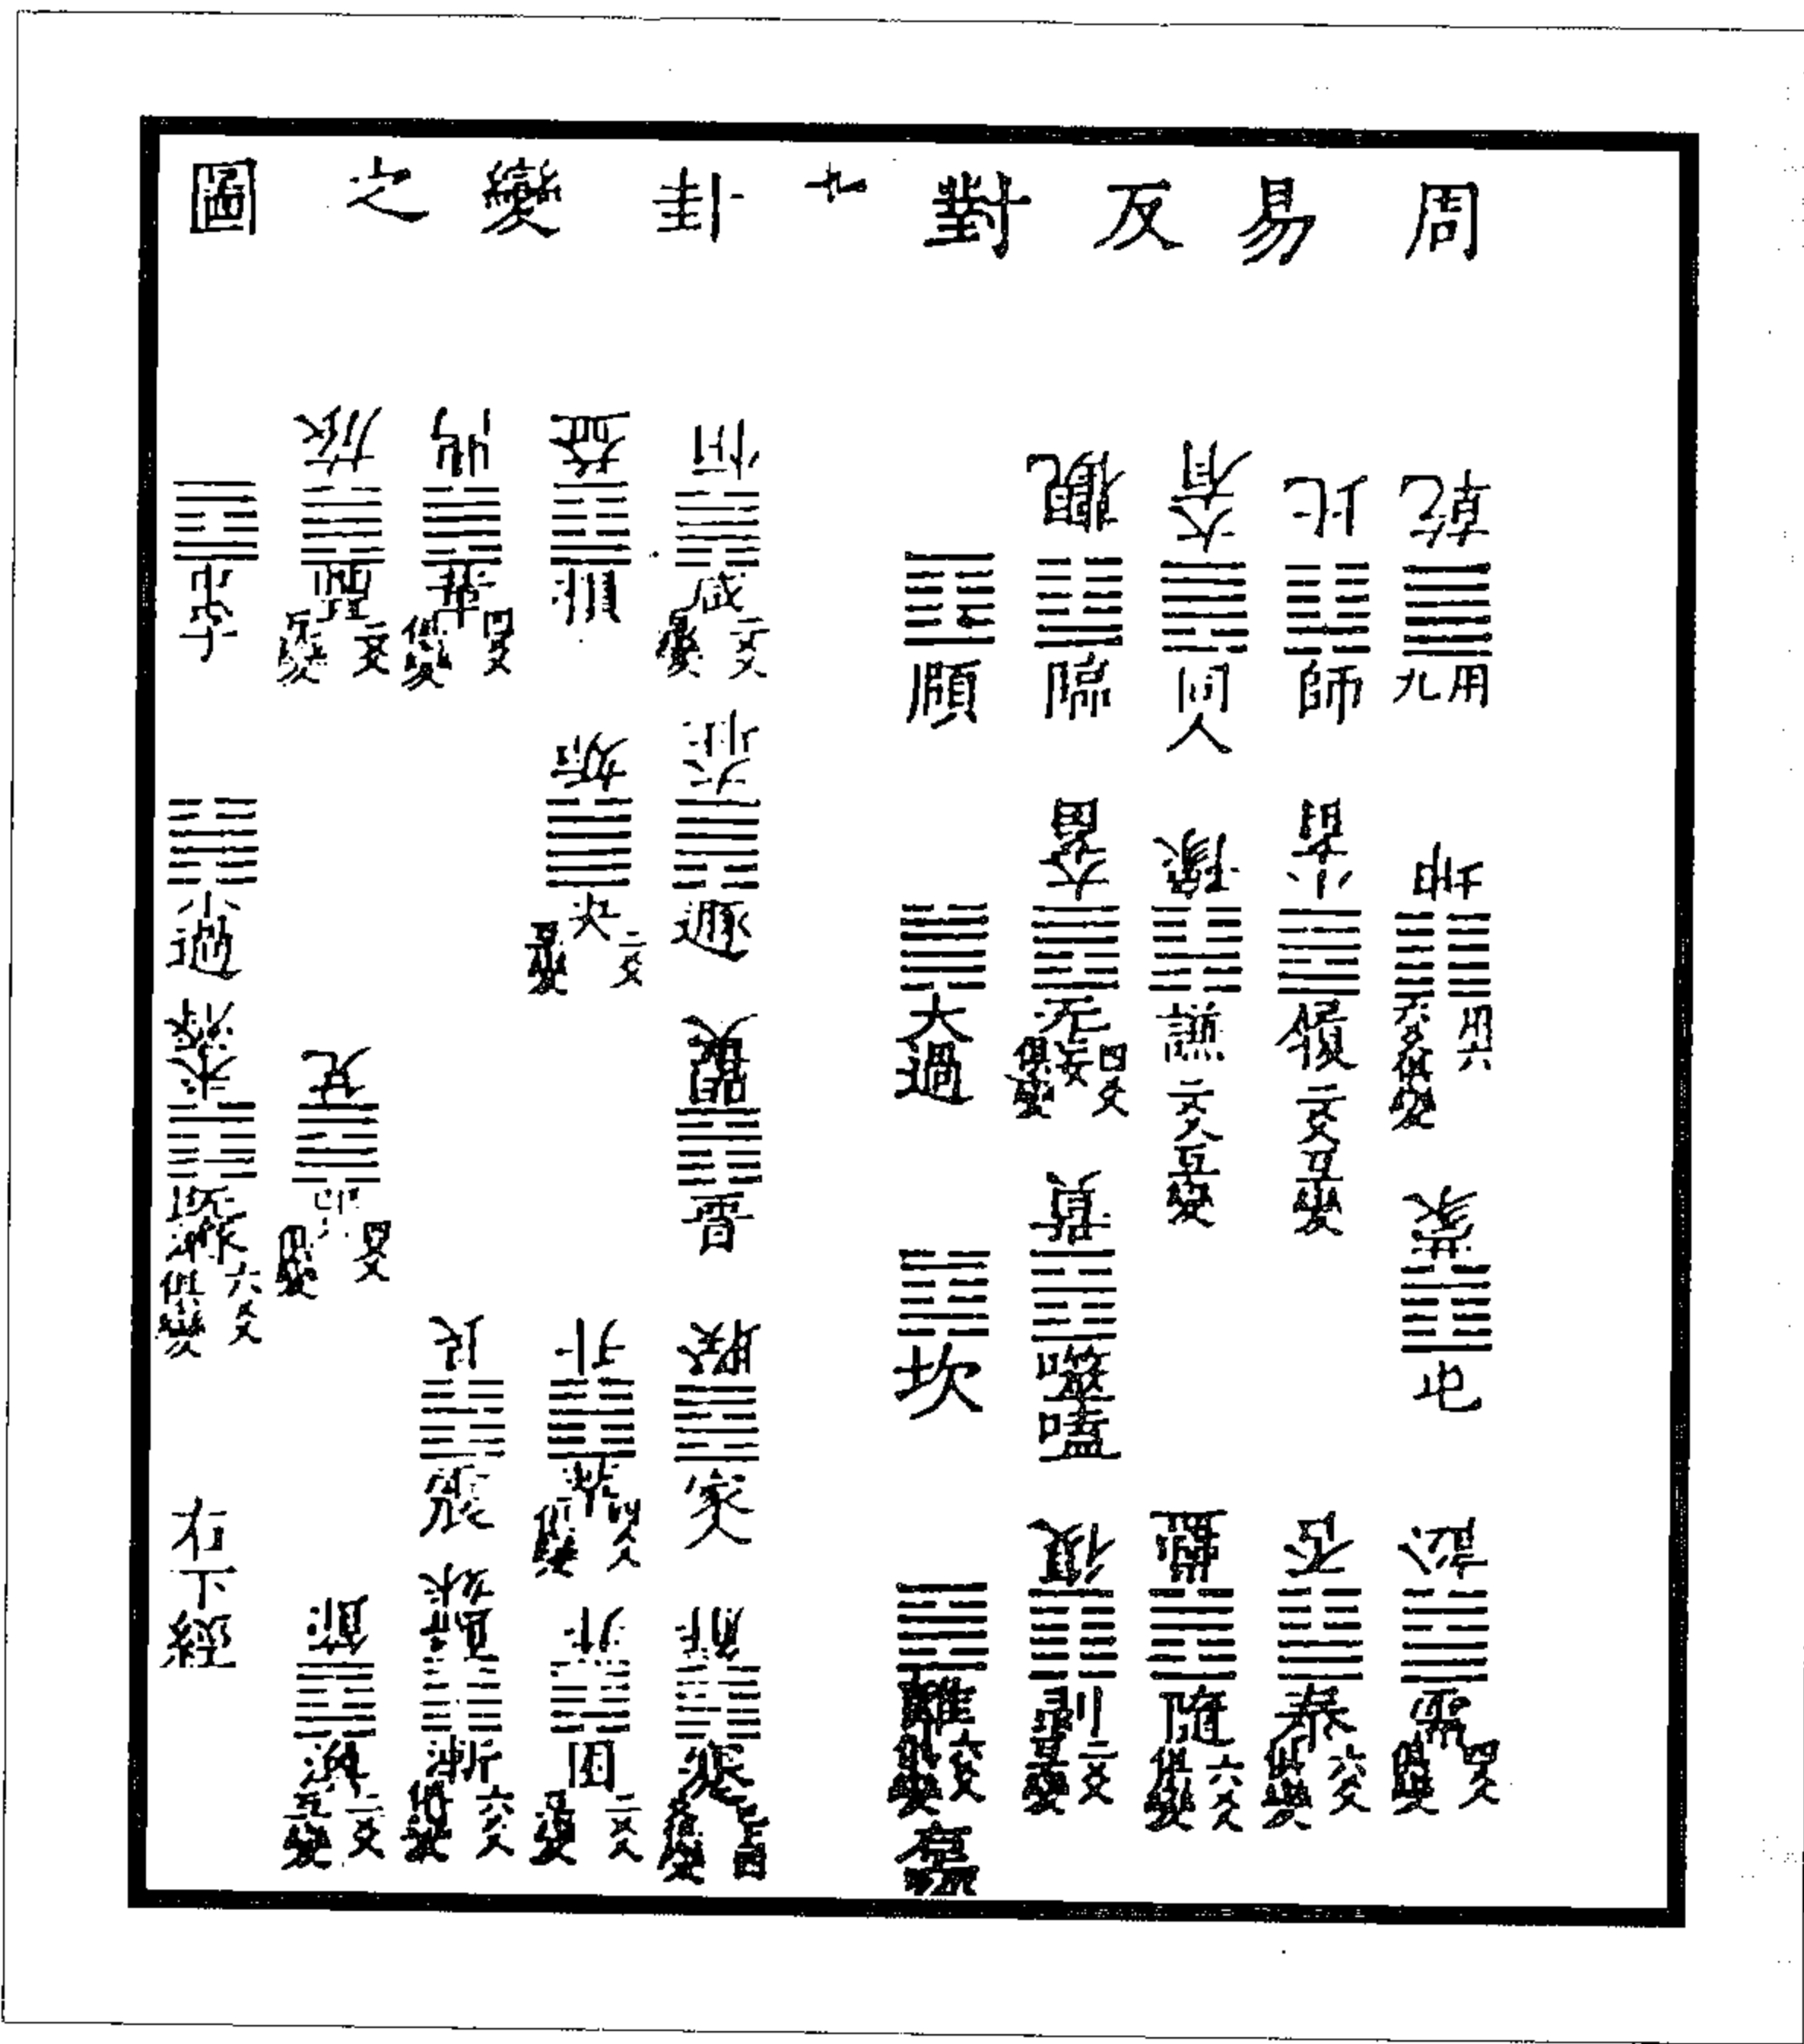 周易反對卦變之圖
乾 用九 坤 用六 六爻俱變 蒙 屯 訟 需 四爻俱變
比 師 小畜 履 二爻互變 否 泰 六爻俱變
大有 同人 豫 謙 二爻互變 蠱 隨 六爻俱變
觀 臨 大畜 无妄 四爻俱變 賁 噬嗑 復 剝 二爻互變
頤 大過 坎 離 六爻俱變
恒 咸 二爻互變 大壯 遯 明夷 晉 睽 家人 解 蹇
益 損 姤 夬 二爻互變 升 萃 四爻俱變 井 困 二爻互變
鼎 革 四爻俱變 艮 震 歸妹 漸 六爻俱變
旅 豐 二爻互變 兌 巽 四爻俱變 節 渙 二爻互變
中孚 小過 未濟 既濟 六爻俱變 右下經